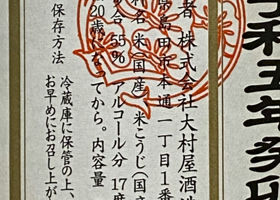 令和五年
者 株式会社大村屋酒造
島田市本通一丁目1番
名 米(国産)、米こうじ(国産
合 55% アルコール分 17度
20歳になってから。内容量
保存方法 冷蔵庫に保管の上、
お早めにお召し上が